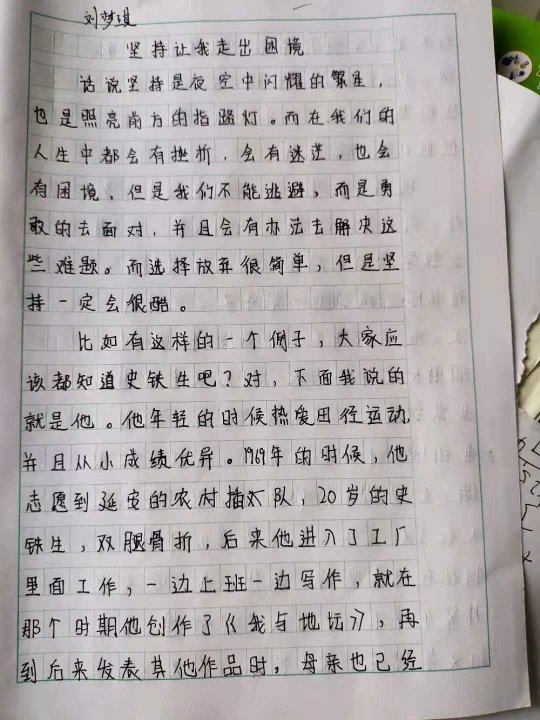 刘梦琪
坚持让我走出困境
话说坚持是夜空中闪耀的繁星，
也是照亮前方的指路灯。而在我们的
人生中都会有挫折，会有迷茫，也会
有困境，但是我们不能逃避，而是勇
敢的去面对，并且会有办法去解决这
些难题。而选择放弃很简单，但是坚
持一定会很酷。
比如有这样的一个例子，大家应
该都知道史铁生吧？对，下面我说的
就是他。他年轻的时候热爱田径运动
并且从小成绩优异。1969年的时候，他
志愿到延安的农村插队，20岁的史
铁生，双腿骨折，后来他进入了工厂
里面工作，一边上班一边写作，就在
那个时期他创作了《我与地坛》，再
到后来发表其他作品时，母亲也已经